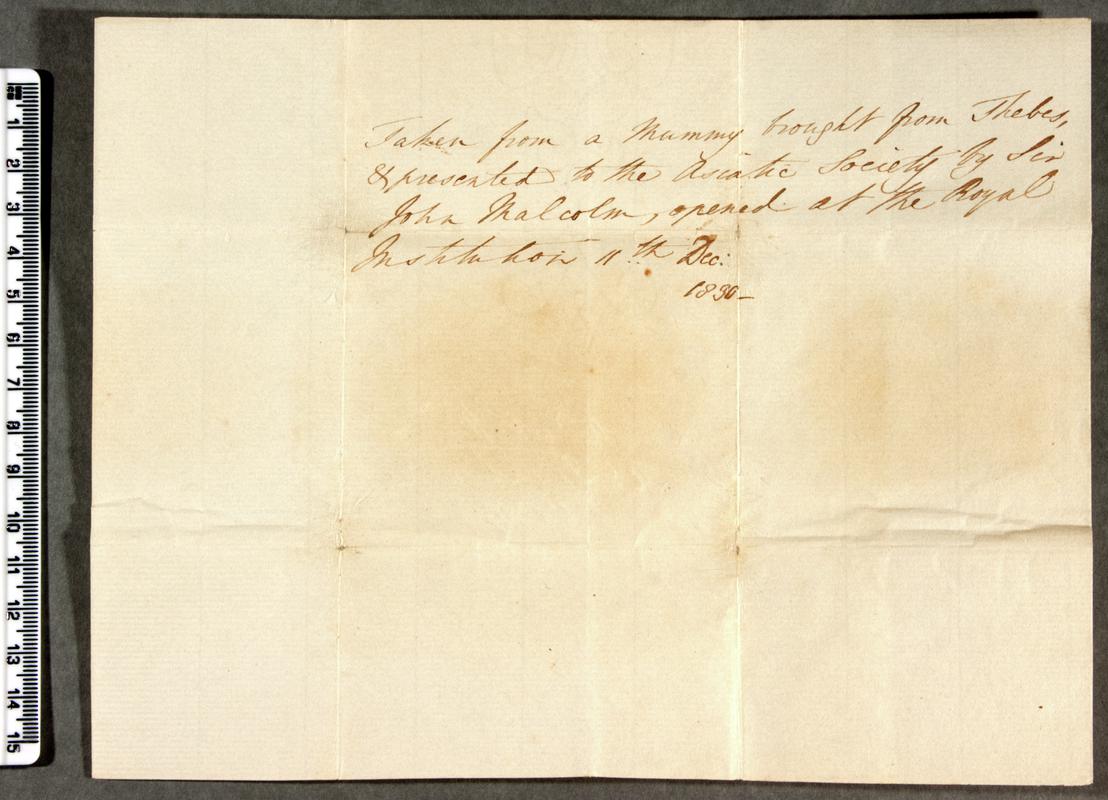 Taken from a Mummy brought from Thebes,
& presented to the Asiatic Society by Sir
John Malcolm, opened at the Royal
Institution 11th Dec:
1830–
1
2
3
4
5
6
7
8
9
10
11
12
13
14
15